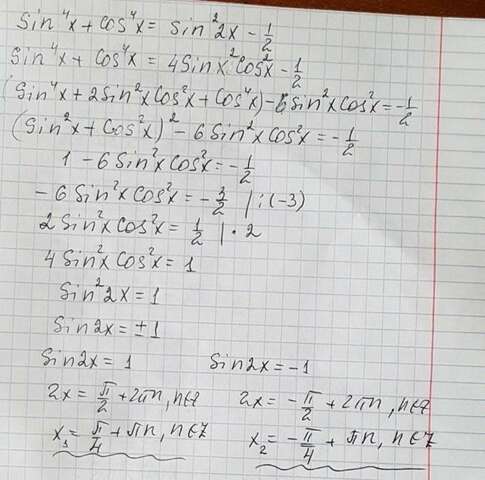 sin⁴x + cos⁴x = sin²2x - 1/2
sin⁴x + cos⁴x = 4sinx²cosx² - 1/2
(sin⁴x + 2sin²xcos²x + cos⁴x) - 6sin²xcos²x = -1/2
(sin²x + cos²x)² - 6sin²xcos²x = -1/2
1 - 6sin²xcos²x = -1/2
- 6sin²xcos²x = -3/2 | : (-3)
2sin²xcos²x = 1/2 | · 2
4sin²xcos²x = 1
sin²2x = 1
sin2x = ±1
sin2x = 1 sin2x = -1
2x = π/2 + 2πn, n∈Z 2x = -π/2 + 2πn, n∈Z
x₁ = π/4 + πn, n∈Z x₂ = -π/4 + πn, n∈Z